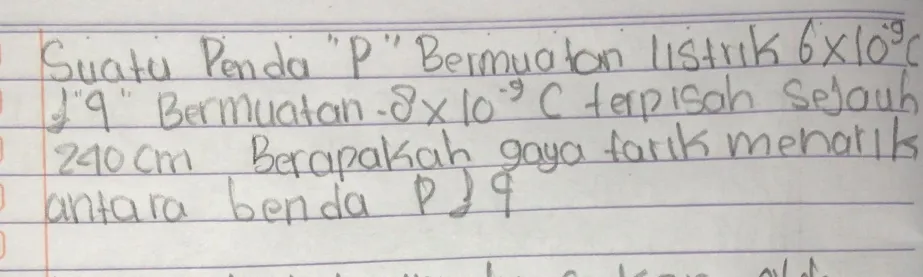 Suatu Penda "P" Bermuatan listrik 6x10⁻⁹C
& "q" Bermuatan -8x10⁻⁹ C terpisah sejauh
240 cm Berapakah gaya tarik menarik
antara benda P & q